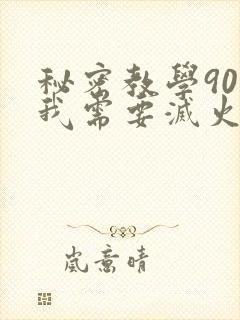 秘密教學90
我需要滅火
嵐意晴